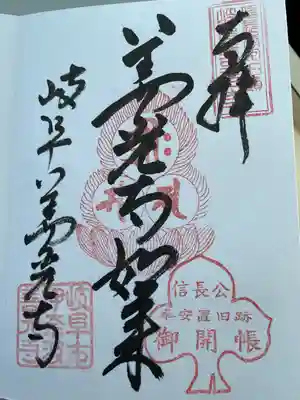 奉拝
善光寺如来
岐阜善光寺
信長公
奉安置旧跡
御開帳